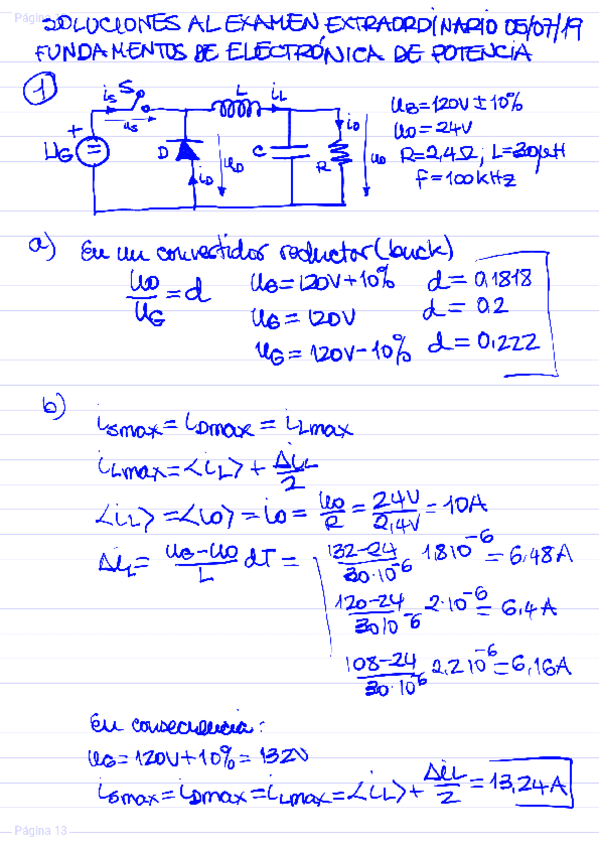 Página 12
SOLUCIONES AL EXAMEN EXTRAORDINARIO 05/07/19
FUNDAMENTOS DE ELECTRÓNICA DE POTENCIA
1
is S L iL
us
io
+
UG D uD C R uo
iD
UG=120V±10%
uo=24V
R=2,4Ω; L=30μH
f=100kHz
a) En un convertidor reductor (buck)
uo/UG = d
UG=120V+10% d=0,1818
UG=120V d=0.2
UG=120V-10% d=0,222
b) iSmax=iDmax=iLmax
iLmax=<iL>+ΔiL/2
<iL>=<io>=io=uo/R=24V/2,4V=10A
ΔiL=(UG-uo)/L dT=
(132-24)/(30·10^-6) 1,8 10^-6=6,48A
(120-24)/(30 10^-6) 2·10^-6=6,4A
(108-24)/(30·10^-6) 2,2 10^-6=6,16A
En consecuencia:
UG=120V+10%=132V
iSmax=iDmax=iLmax=<iL>+ΔiL/2=13,24A
Página 13